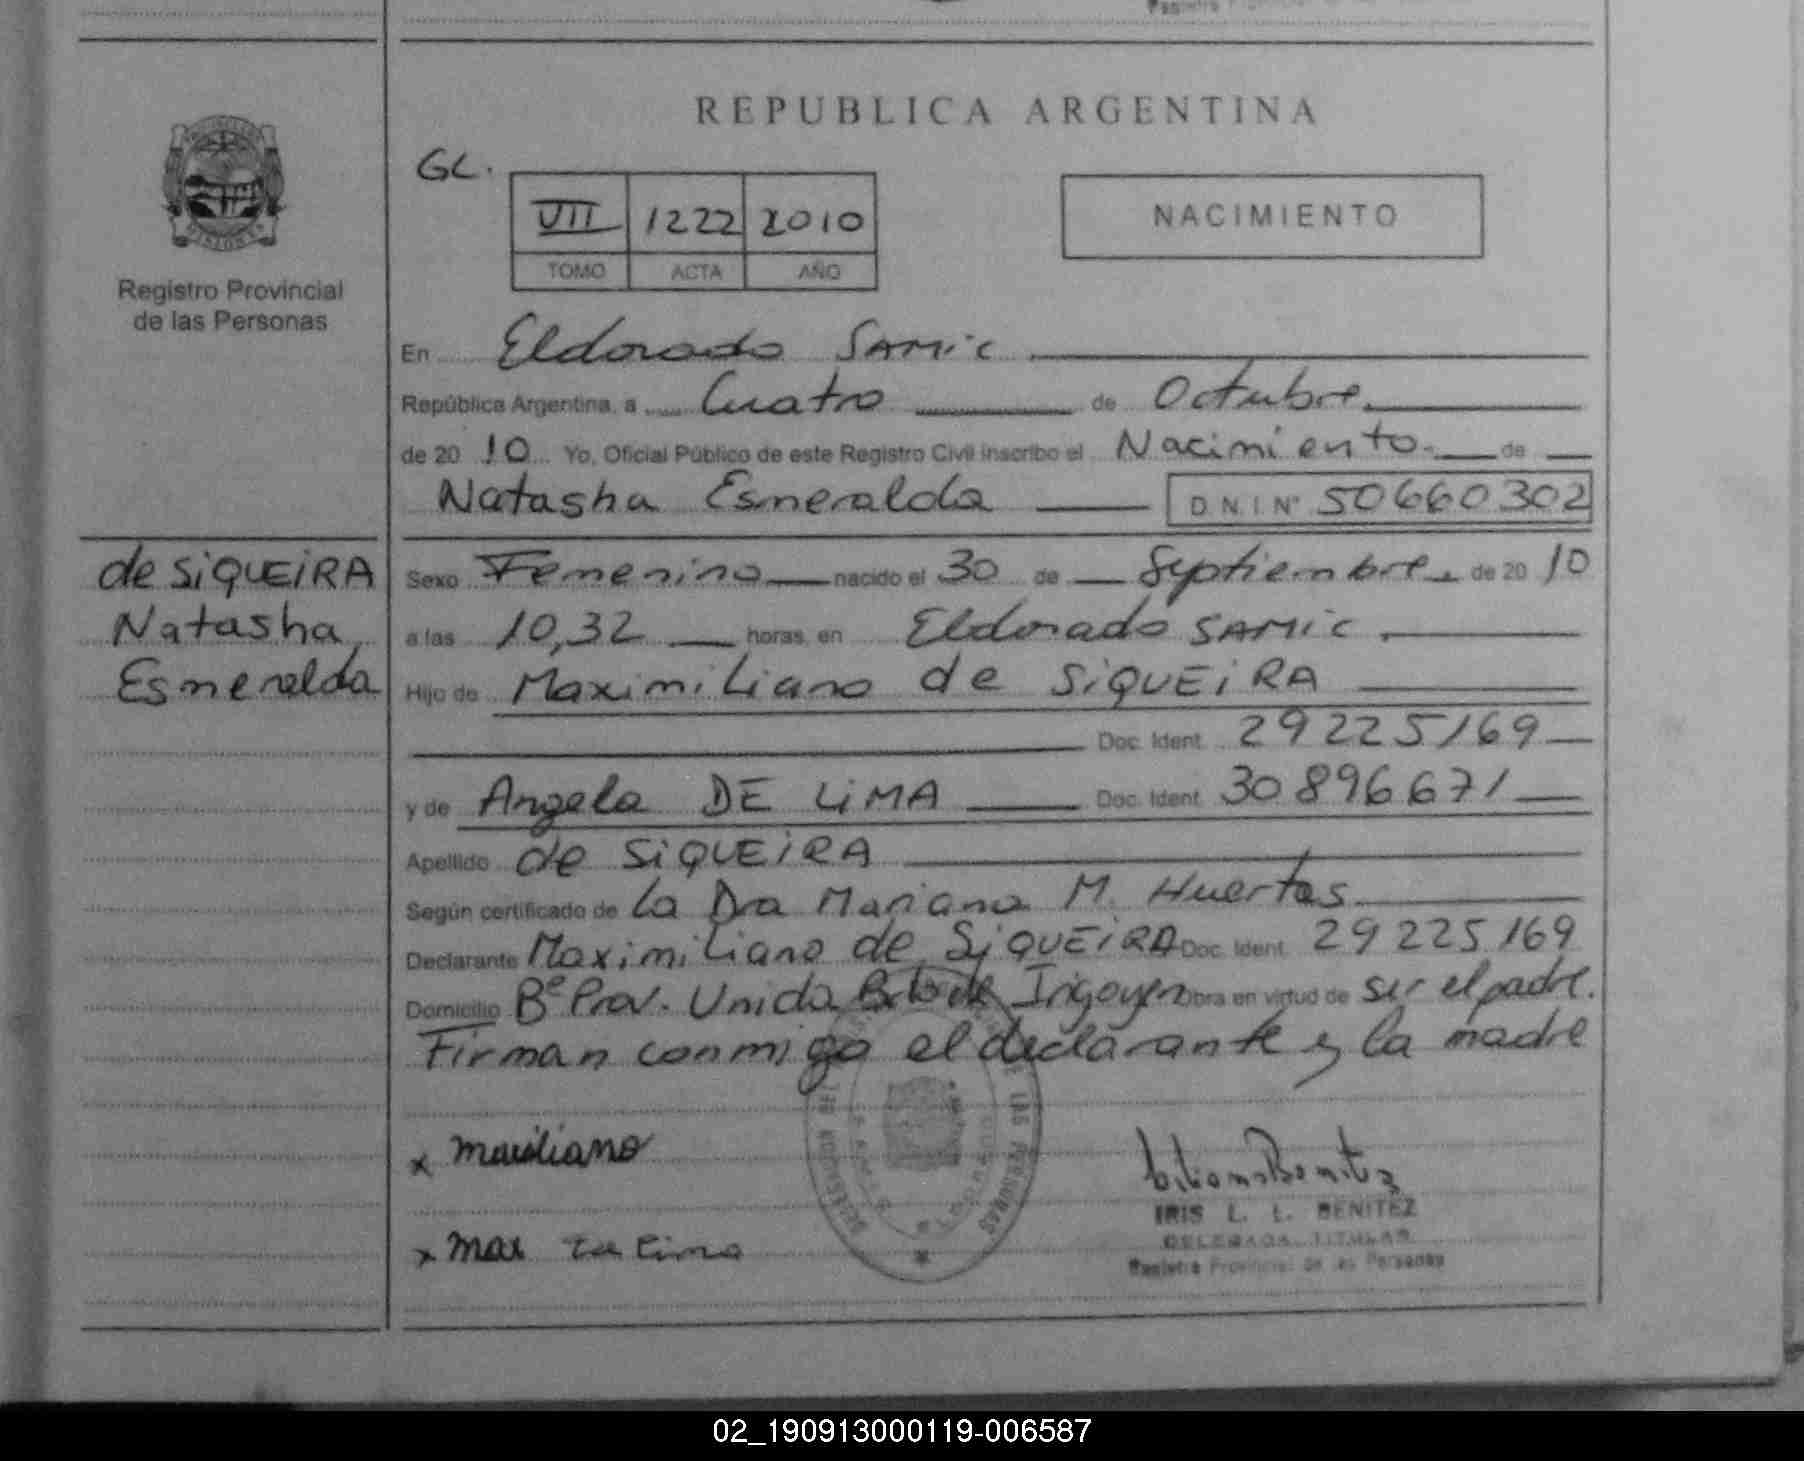 REPUBLICA ARGENTINA
GL.
VII 1222 2010
TOMO ACTA AÑO
NACIMIENTO
Registro Provincial
de las Personas
En Eldorado SAMiC
República Argentina, a Cuatro de Octubre
de 20 10 Yo, Oficial Público de este Registro Civil inscribo el Nacimiento de
Natasha Esmeralda D.N.I. Nº 50660302
de SiQUEiRA
Natasha
Esmeralda
Sexo Femenino nacido el 30 de Septiembre de 20 10
a las 10,32 horas, en Eldorado SAMiC
Hijo de Maximiliano de SiQUEiRA
Doc. Ident. 29225169
y de Angela DE LiMA Doc. Ident. 30896671
Apellido de SiQUEiRA
Según certificado de la Dra Mariana M. Huertas
Declarante Maximiliano de SiQUEiRA Doc. Ident. 29225169
Domicilio Bº Prov. Unida Bdo de Irigoyen Obra en virtud de ser el padre.
Firman conmigo el declarante y la madre
IRIS L. L. BENITEZ
DELEGADA TITULAR
Registro Provincial de las Personas
02_190913000119-006587